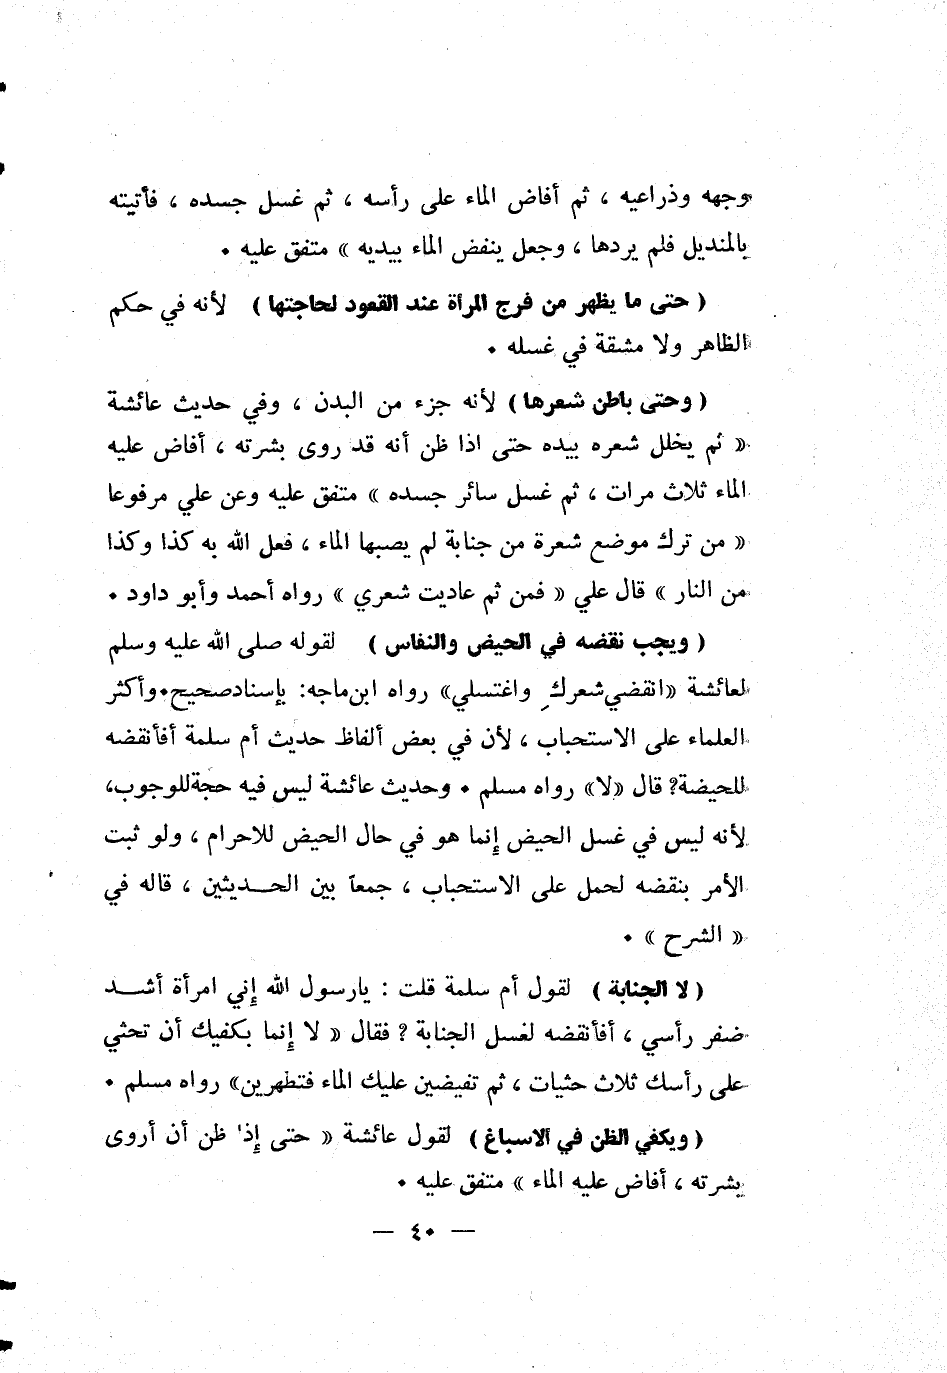 وجهه وذراعيه ، ثم أفاض الماء على رأسه ، ثم غسل جسده ، فأتيته
بالمنديل فلم يردها ، وجعل ينفض الماء بيديه » متفق عليه .
( حتى ما يظهر من فرج المرأة عند القعود لحاجتها ) لأنه في حكم
الظاهر ولا مشقة في غسله .
( وحتى باطن شعرها ) لأنه جزء من البدن ، وفي حديث عائشة
« ثم يخلل شعره بيده حتى اذا ظن أنه قد روى بشرته ، أفاض عليه
الماء ثلاث مرات ، ثم غسل سائر جسده » متفق عليه وعن علي مرفوعا
« من ترك موضع شعرة من جنابة لم يصبها الماء ، فعل الله به كذا وكذا
من النار » قال علي « فمن ثم عاديت شعري » رواه أحمد وأبو داود .
( ويجب نقضه في الحيض والنفاس ) لقوله صلى الله عليه وسلم
لعائشة «انقضي شعركِ واغتسلي» رواه ابن ماجه: بإسناد صحيح . وأكثر
العلماء على الاستحباب ، لأن في بعض ألفاظ حديث أم سلمة أفأنقضه
للحيضة؟ قال «لا» رواه مسلم . وحديث عائشة ليس فيه حجة للوجوب،
لأنه ليس في غسل الحيض إنما هو في حال الحيض للاحرام ، ولو ثبت
الأمر بنقضه لحمل على الاستحباب ، جمعاً بين الحـــديثين ، قاله في
« الشرح » .
( لا الجنابة ) لقول أم سلمة قلت : يارسول الله إني امرأة أشـــد
ضفر رأسي ، أفأنقضه لغسل الجنابة ؟ فقال « لا إنما يكفيك أن تحثي
على رأسك ثلاث حثيات ، ثم تفيضين عليك الماء فتطهرين» رواه مسلم .
( ويكفي الظن في الاسباغ ) لقول عائشة « حتى إذا ظن أن أروى
بشرته ، أفاض عليه الماء » متفق عليه .
— ٤٠ —